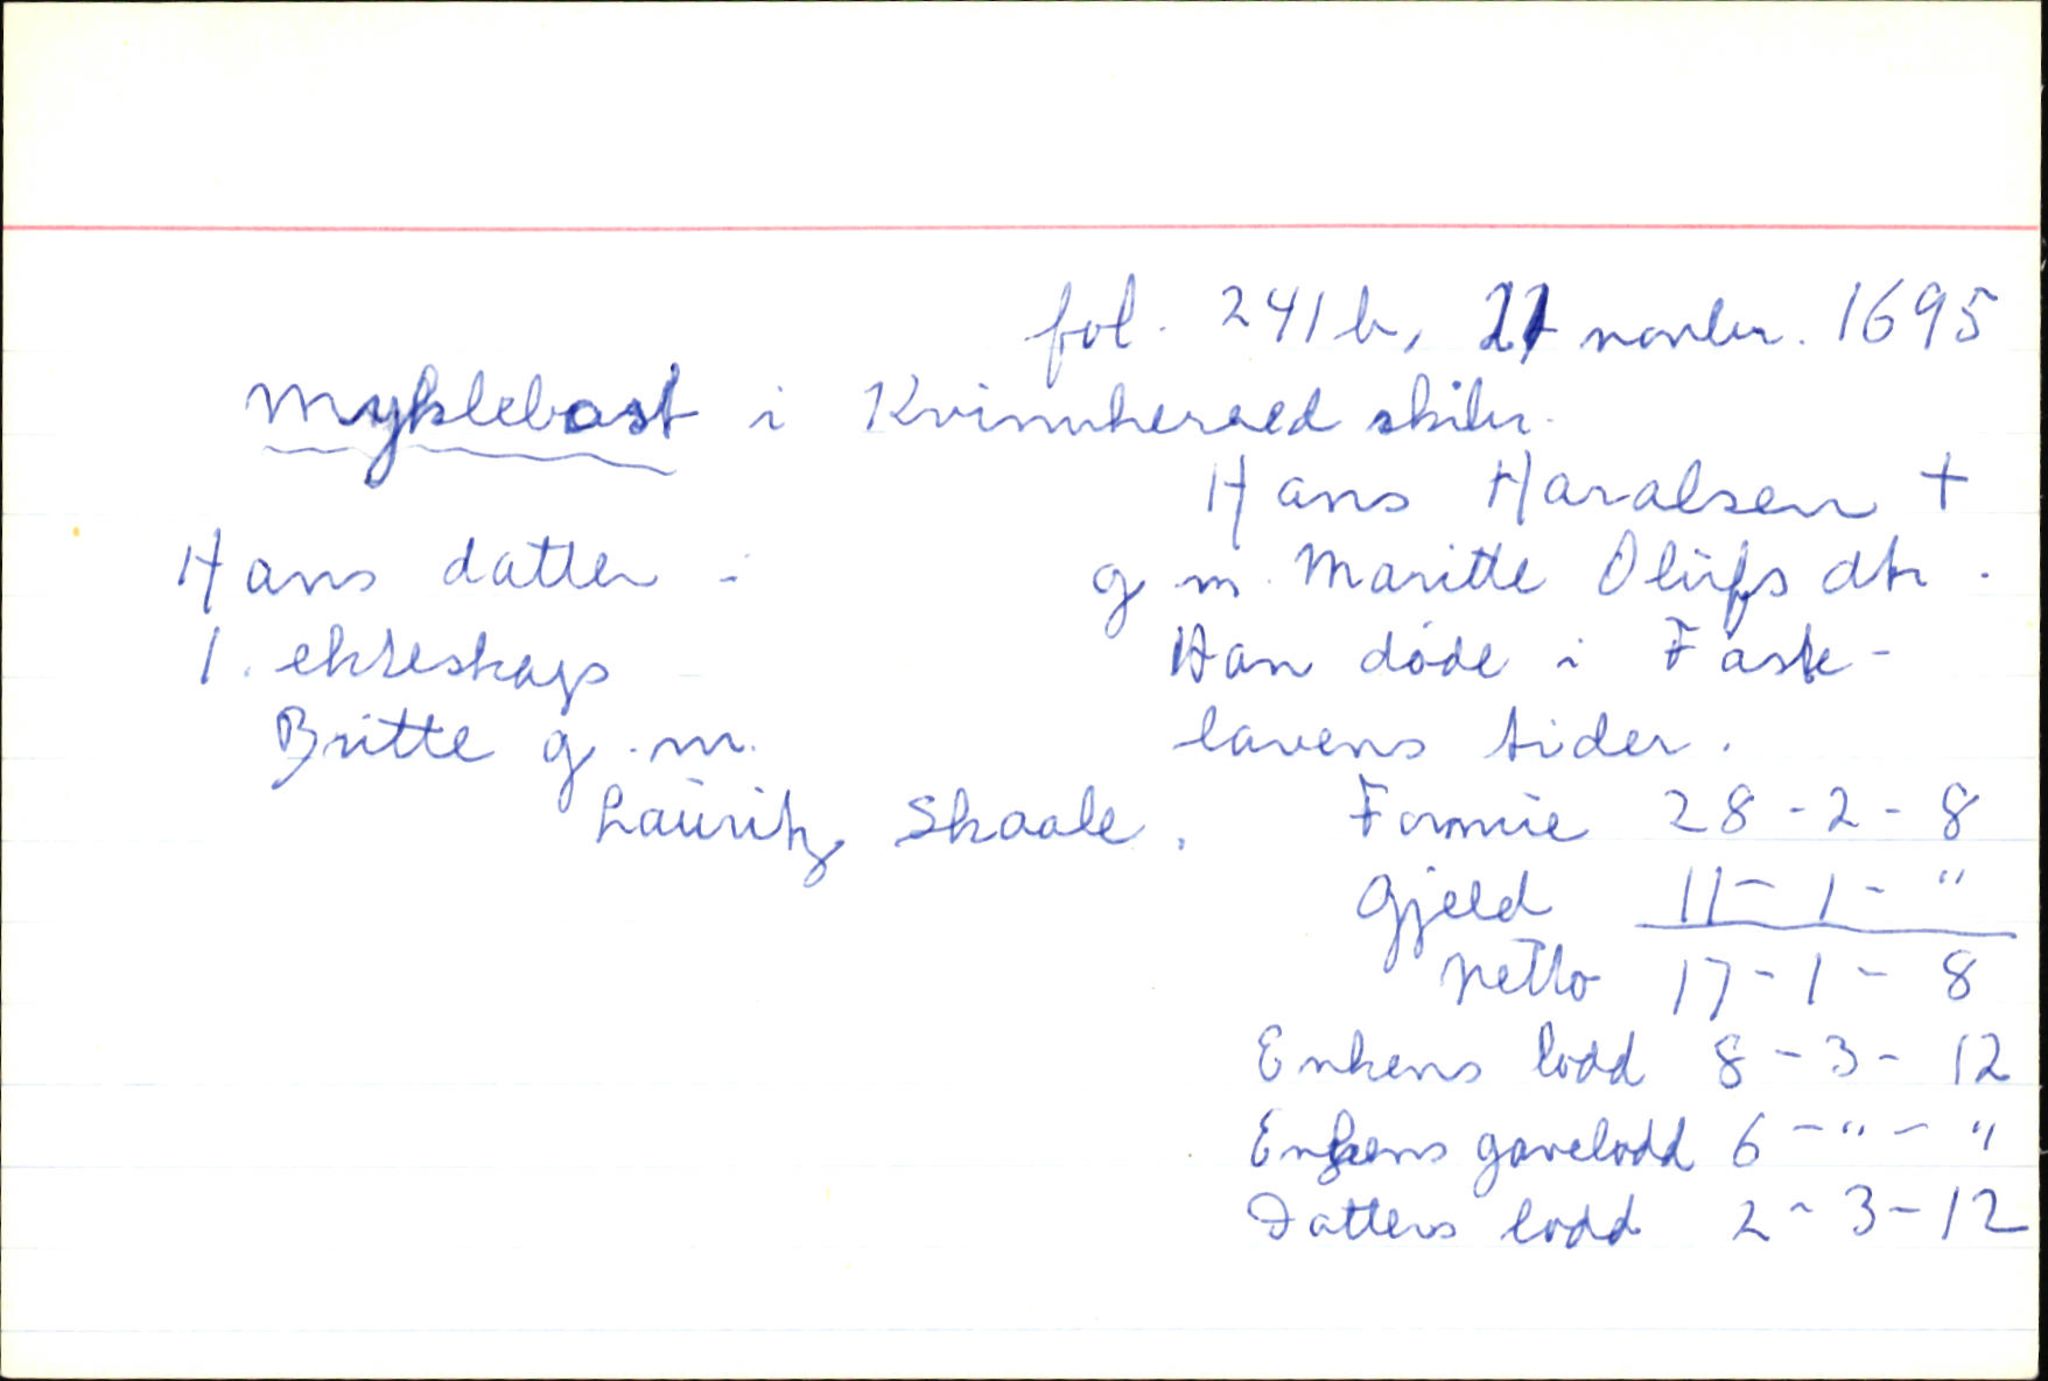 fol. 241 b, 21 novbr. 1695
Myklebost i Kvinnherred skibr.
Hans Haralsen +
g m. Maritte Olüfs dtr.
Han døde i Faste-
lavens tider.
Hans datter i
1. ekteskap
Britte g.m.
Laüritz Skaale.
Formüe 28-2-8
Gjeld 11-1-"
Netto 17-1-8
Enkens lodd 8-3-12
Enkens gavelodd 6-"-"
Datters lodd 2-3-12